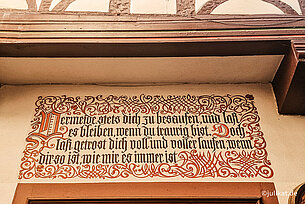 Vermeide stets dich zu besaufen, und laß
es bleiben, wenn du traurig bist. Doch
laß getrost dich voll und voller laufen, wenn
dir so ist, wie mir es immer ist
©julikat.de